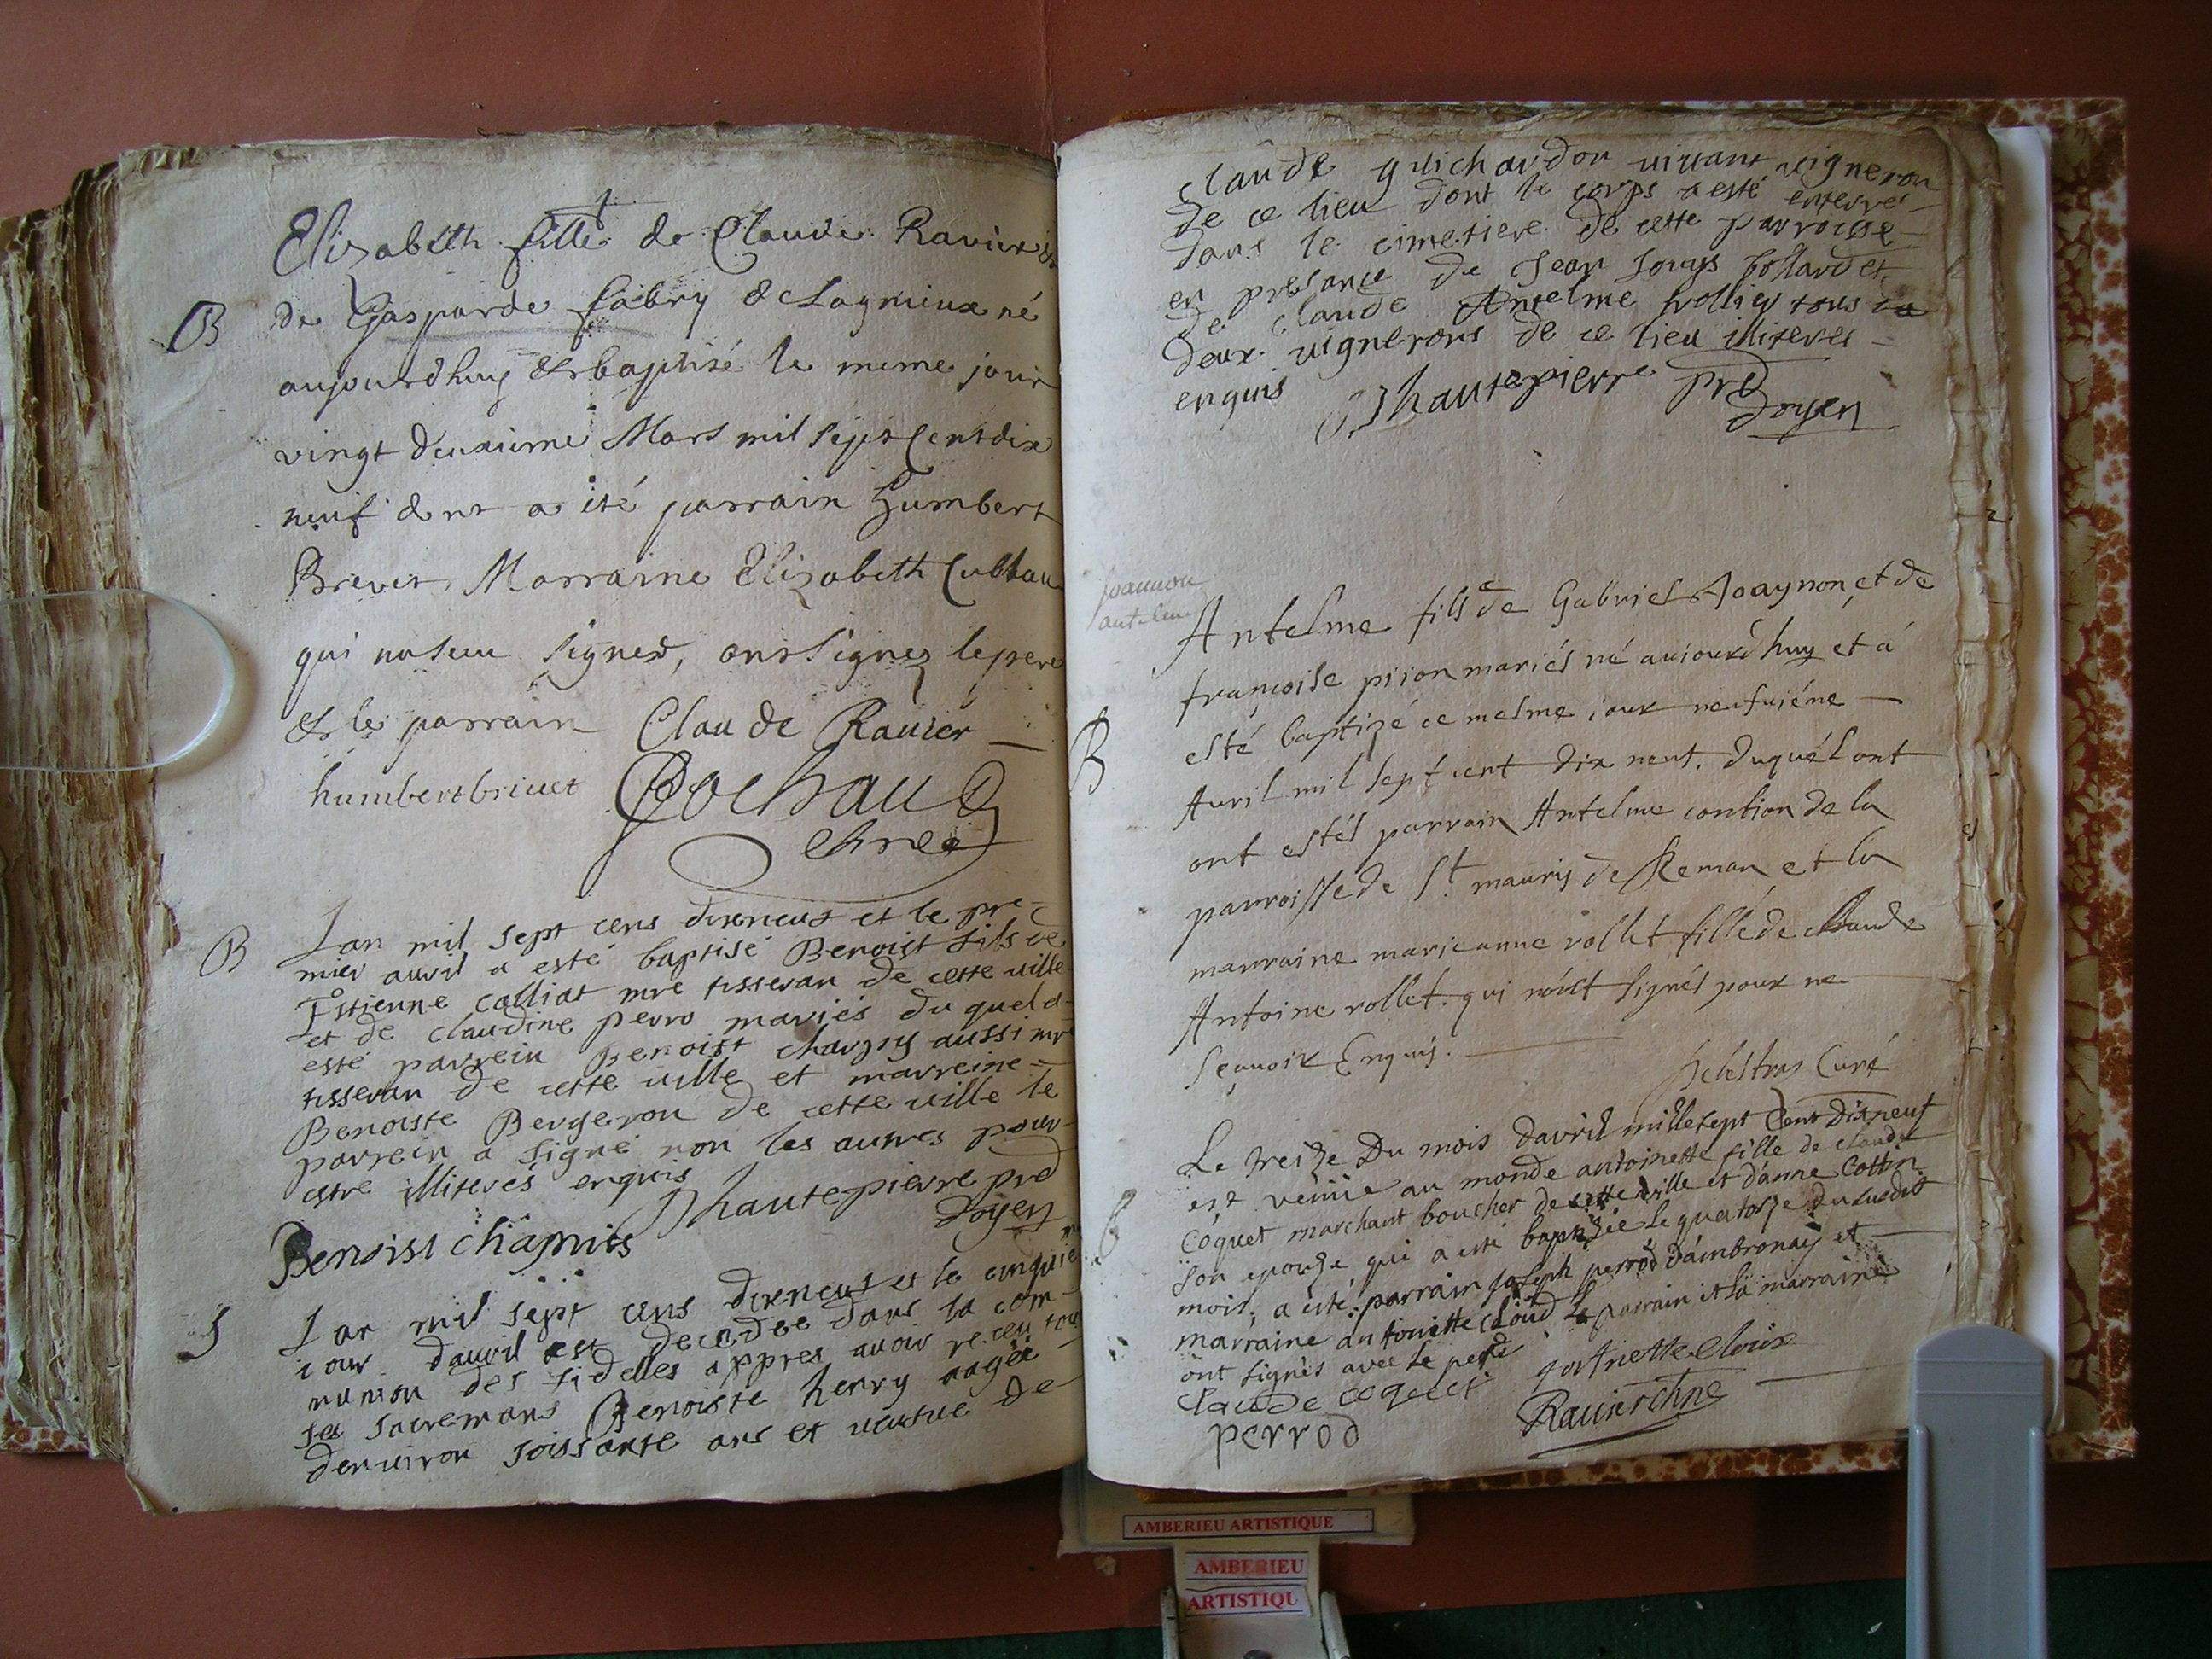 Elizabeth fille de Claude Ravier &
B
de Gasparde fabry de Lagnieux né
aujourdhuy & baptisé le meme jour
vingt deuxieme Mars mil sept cent dix
neuf dont a été parrain Humbert
Brevet, Marraine Elizabeth
qui signer, ont signez le pere
& le parrain Claude Ravier
humbert brivet Cochaud
chne
B
Lan mil sept cens dixneuf et le pre-
mier auvil a esté baptisé Benoist fils de
Estienne Calliat mre tisseran de cette ville
et de claudine perro mariés du quel a
esté parrein Benoist chapuy aussi mre
tisseran de cette ville et marreine
Benoiste Bergeron de cette ville le
parrein a signé non les autres pour
estre illiterés enquis
Dhautepierre pred
doyen
Benoist chapuis
S
Lan mil sept cens dixneuf et le cinquie
iour dauvil est decedee dans la com-
munion des fidelles appres avoir receu tous
ses sacremans Benoiste henry aagée
denuiron soissante ans et veufue de
claude guichardon uiuant uigneron
de ce lieu dont le corps a esté enterré
dans le cimetiere de cette parroisse
en presance de Jean Louys bollard et
de claude Antelme trollier tous
deux uignerons de ce lieu illiterés
enquis
Dhautepierre pred
doyen
Joannon
antelme
Antelme fils de Gabriel Joaynon et de
françoise piion mariés né auiourdhuy et á
B
esté baptizé ce mesme iour neufuiéme
Auril mil sept cent dix neuf. duquél ont
ont estés parrain Antelme contion de la
parroisse de St mauris de Reman et la
marraine marieanne rollet, fille de claude
Antoine rollet. qui n'óist signés pour ne
sçauoir Enquis.
Delestras Curé
Le treize Du mois davril millesept Cent Disneuf
est venüe au monde antoinette fille de claude
B
Coquet marchant boucher de cette ville et d'anne Cottin
son epouze qui a été baptizée le quatorze du susdit
mois, a été parrain joseph perrod d'ambronay et
marraine antoinette Cloud le parrain et la marraine
ont signés avec le pere
Claude coquet
perrod
Ravier chne
AMBERIEU ARTISTIQUE
AMBERIEU
ARTISTIQU